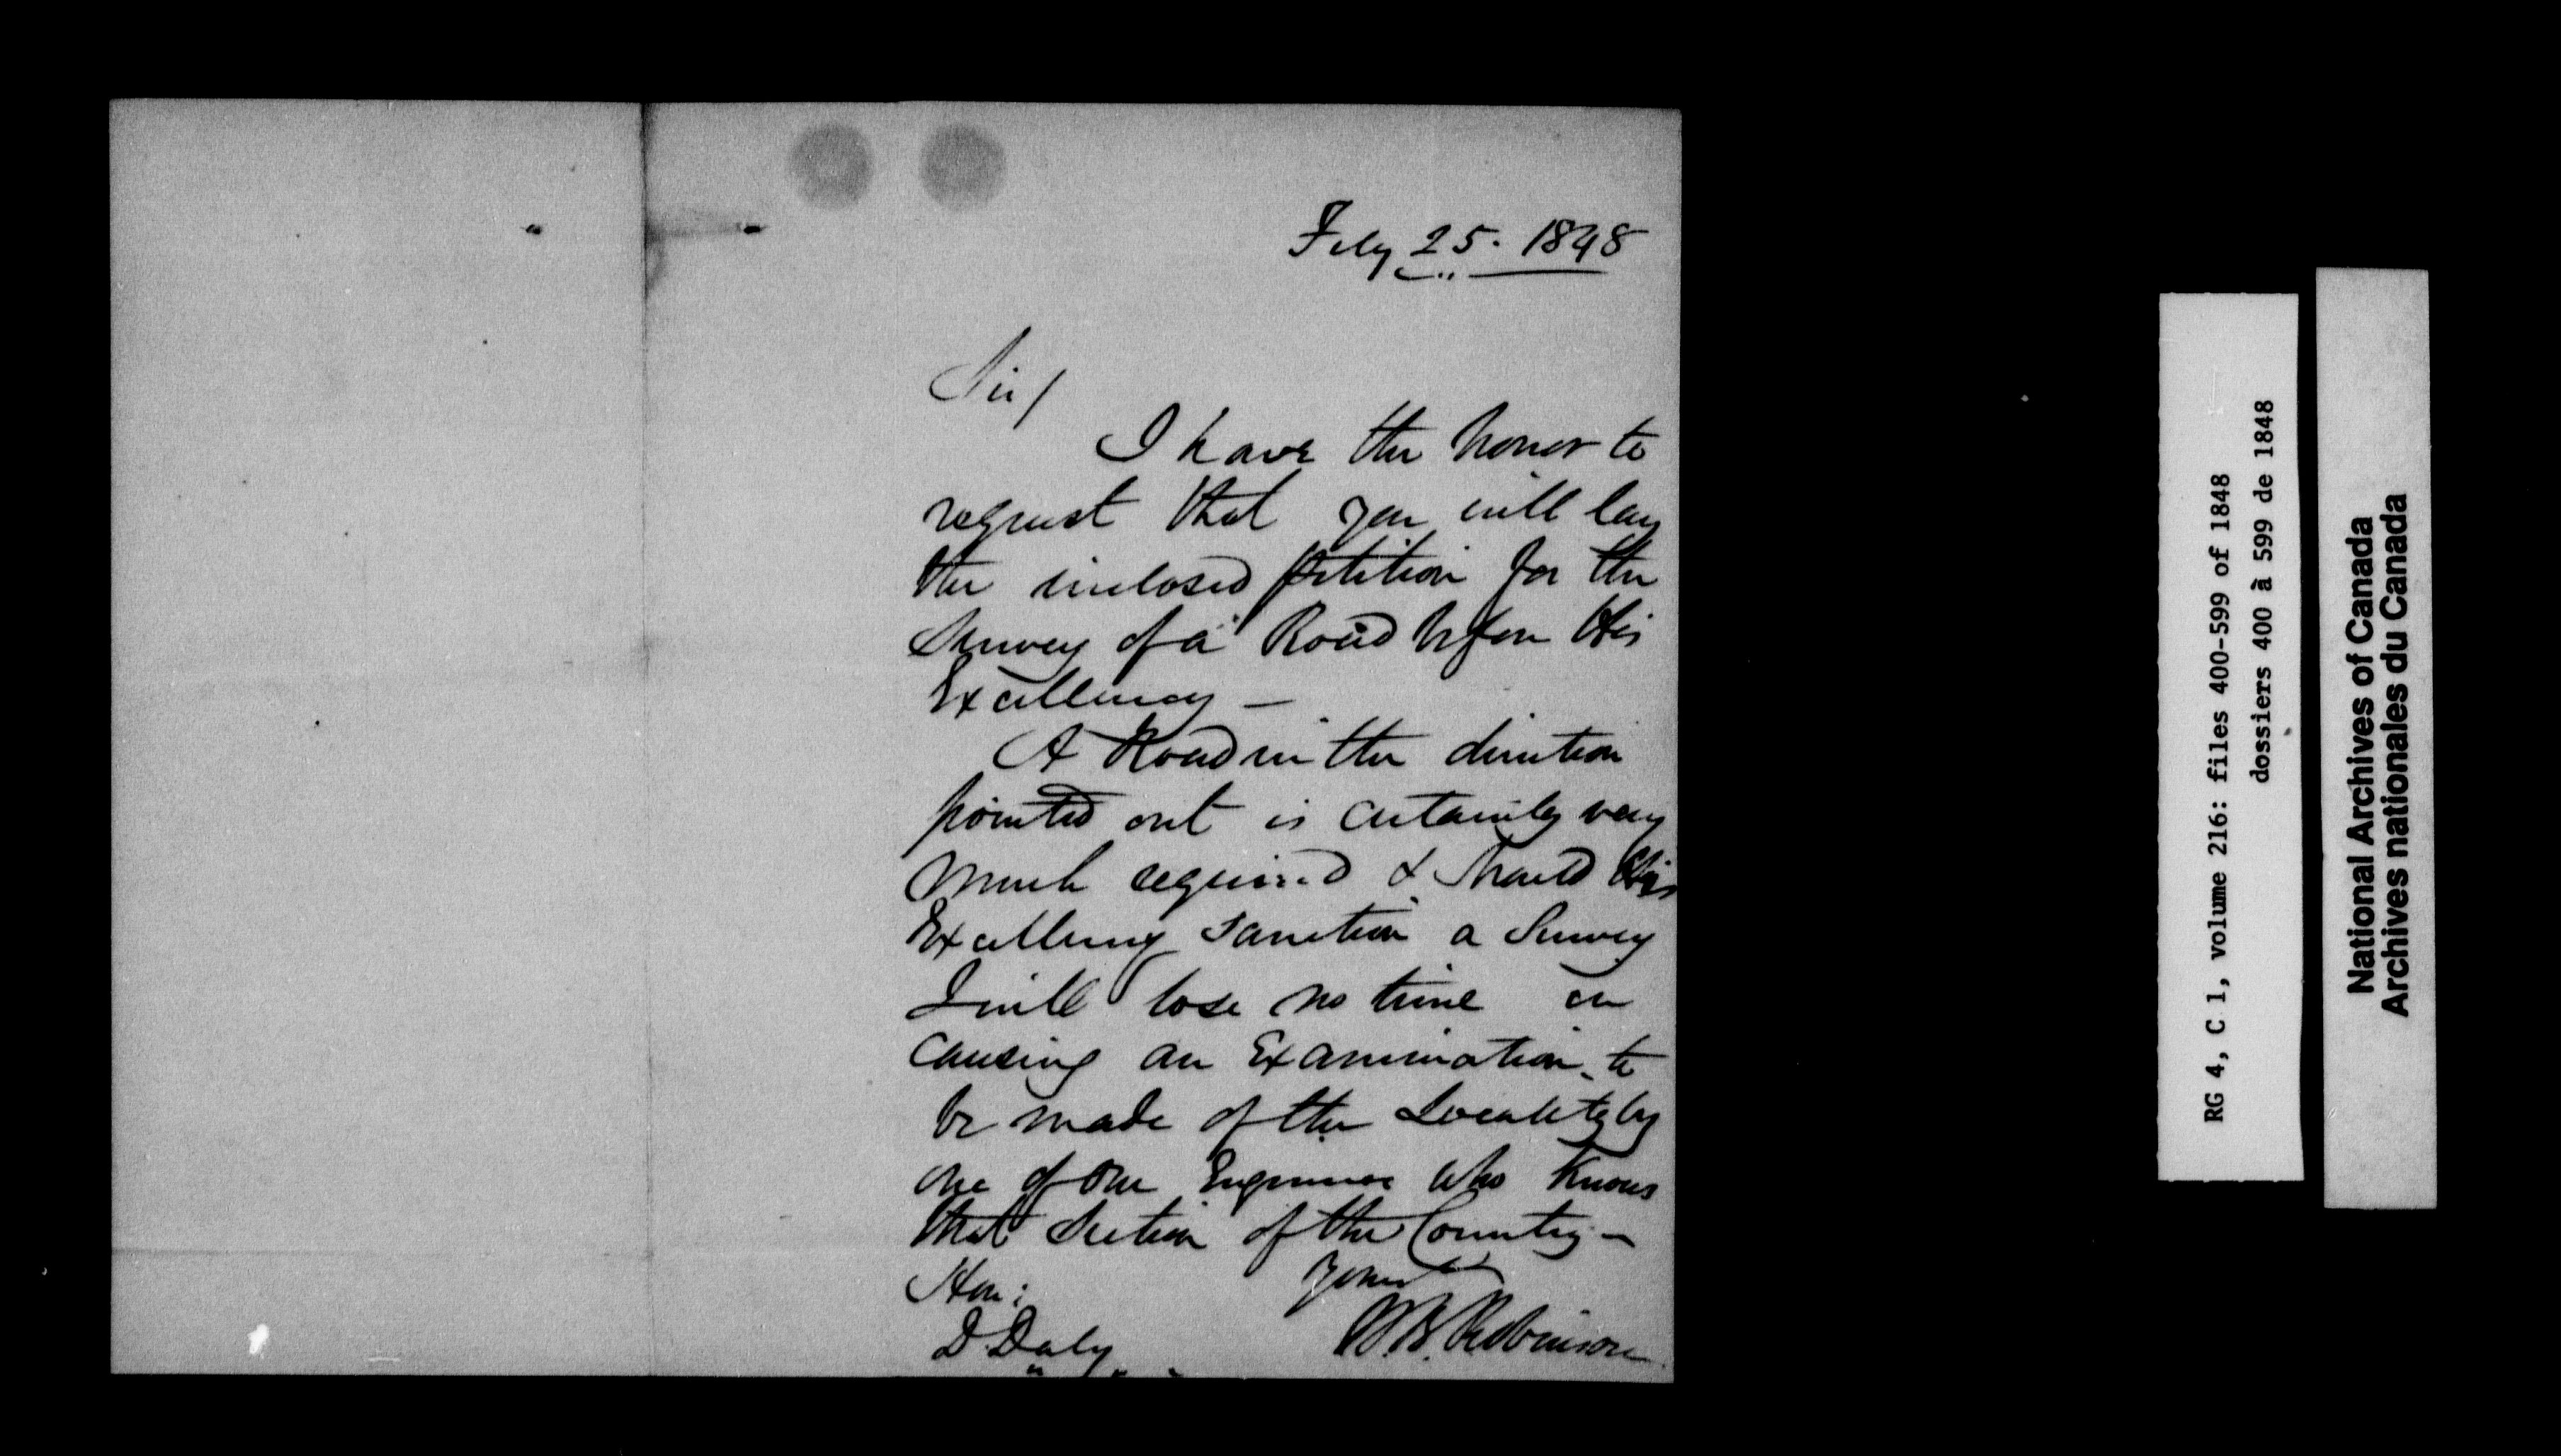 Feby 25. 1848
Sir/
I have the honor to
request that you will lay
the inclosed petition for the
Survey of a Road before His
Excellency —
A Road in the direction
pointed out is certainly very
much required & should His
Excellency sanction a Survey
I will lose no time in
causing an Examination to
be made of the Locality by
one of our Engineers who knows
that Section of the Country —
Yours
Hon:
W.B. Robinson
D. Daly
RG 4, C 1, volume 216: files 400-599 of 1848
dossiers 400 à 599 de 1848
National Archives of Canada
Archives nationales du Canada